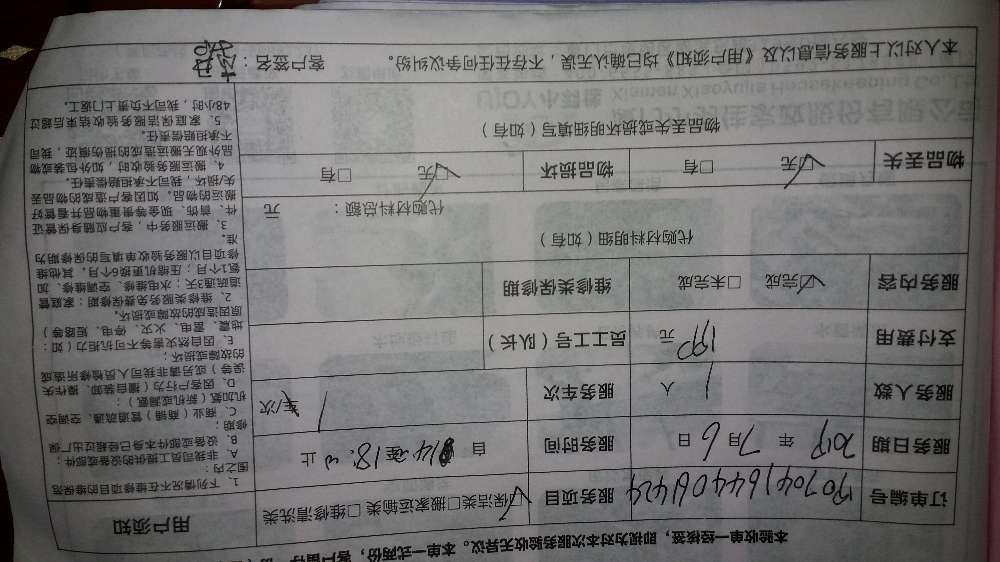 本验收单一经核签，即视为对本次服务验收无异议。本单一式两份，客户留存
订单编号 服务项目 ☑保洁类 □搬家运输类 □维修清洗类
服务日期 2017 年 7 月 6 日 服务时间 自 14 至 18: 止
服务人数 1 人 服务车次 1 车/次
支付费用 199 元 员工工号（队长）
服务内容 ☑完成 □未完成 维修类保修期
代购材料明细（如有）
代购材料总额： 元
物品丢失 ☑无 □有 物品损坏 ☑无 □有
物品丢失或损坏明细填写（如有）
用户须知
1、下列情况不在维修项目的维保范
围之内：
A、非我司员工提供的设备或部件；
B、设备或部件本身已经超过出厂保
修期；
C、商业（商铺）管道疏通、空调空
机加氨（新机或漏氨）；
D、因客户行为（擅自装卸、操作失
误等）或另请非我司人员检修所造成
的故障或损坏；
E、因自然灾害等不可抗力（如：
地震、雷电、火灾、停电、短路等）
原因造成的故障或损坏。
2、维修类服务免费保修期：家庭管
道疏通3天；水电维修、空调维修、加
氨1个月；压缩机更换6个月，其他维
修项目以服务验收单填写的保修期为
准。
3、搬运服务中，客户应随身保管证
件、首饰、现金等贵重物品并看管好
搬运的物品，如因客户造成的物品丢
失/损坏，我司不承担赔偿责任。
4、搬运服务验收时，如外包装或物
品外观无搬运造成的损伤痕迹，我司
不承担赔偿责任。
5、家庭保洁服务验收结束后超过
48小时，我司不负责上门返工。
本人对以上服务信息以及《用户须知》均已确认无误，不存在任何争议纠纷。 客户签名：